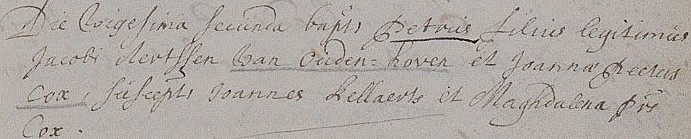 Die Vigesima secunda bapts Petrus filius legitimus
Jacobi Aertssen Van Ouden=hoven et Joanna Peeters
Cox, suscept Joannes Kellaerts et Maghdalena
Cox.